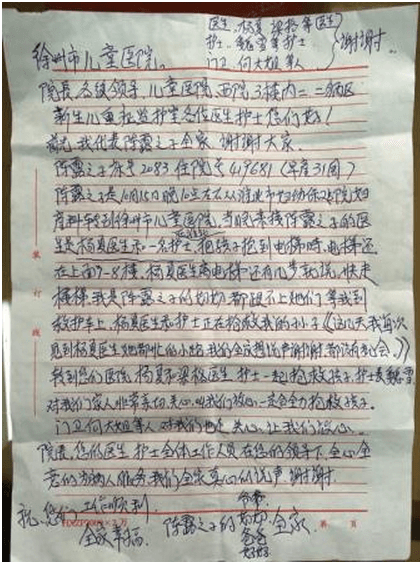 医生. 杨夏 梁裕等医生
护士. 魏雪等护士
门卫 何大姐等人
谢谢.
徐州市儿童医院.
院长、各级领导、儿童医院 西院3楼内二、二病区
新生儿重症监护室各位医生护士您们好!
首先我代表陈露之子全家 谢谢大家.
陈露之子床号2083 住院号419681(早产31周)
陈露之子是10月15日晚10点左右从淮北市妇幼保健院妇
产科转到徐州市儿童医院,当晚来接陈露之子的医
生是杨夏医生和一名护士 把孩子抢到电梯时、电梯还
在上面7-8楼、杨夏医生离电梯还有几步就说、快走
楼梯 我是陈露之子的奶奶 都跟不上她们 等我到
救护车上,杨夏医生和护士正在抢救我的小孙子《这几天我每次
见到杨夏医生她都忙的小跑 我们全家想说声谢谢都没有机会.》
转到您们医院,杨夏和梁裕医生 护士一起抢救孩子.护士长魏雪
对我们家人非常亲切、关心、叫我们放心一定会全力抢救孩子.
门卫何大姐等人 对我们也是关心、让我们放心.
院长、您的医生 护士全体工作人员在您的领导下、全心全
意的为病人服务我们全家真心的说声 谢谢.
祝 您们 工作顺利
全家幸福.
陈露之子的
奶奶
爸爸
妈妈
全家
装
订
线